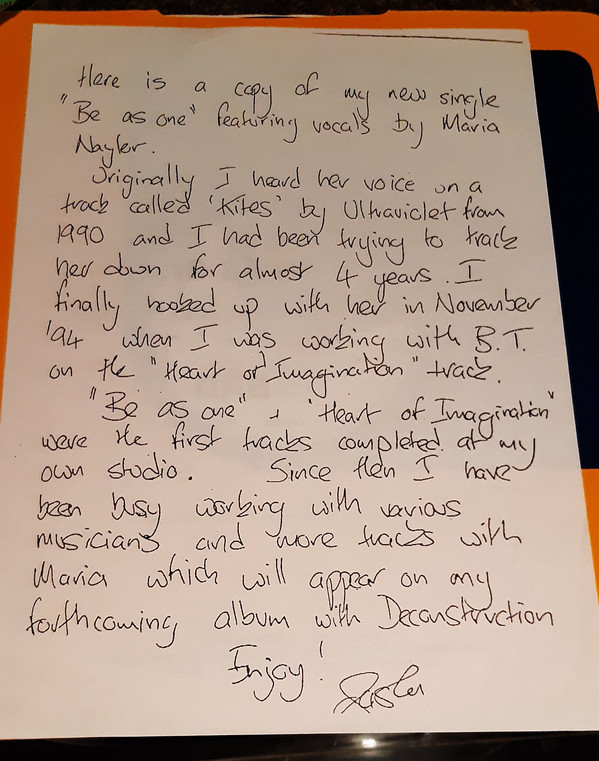 Here is a copy of my new single
"Be as one" featuring vocals by Maria
Nayler.
Originally I heard her voice on a
track called 'Kites' by Ultraviolet from
1990 and I had been trying to track
her down for almost 4 years. I
finally hooked up with her in November
'94 when I was working with B.T.
on the "Heart of Imagination" track.
"Be as one" + 'Heart of Imagination"
were the first tracks completed at my
own studio. Since then I have
been busy working with various
musicians and more tracks with
Maria which will appear on my
forthcoming album with Deconstruction
Enjoy!